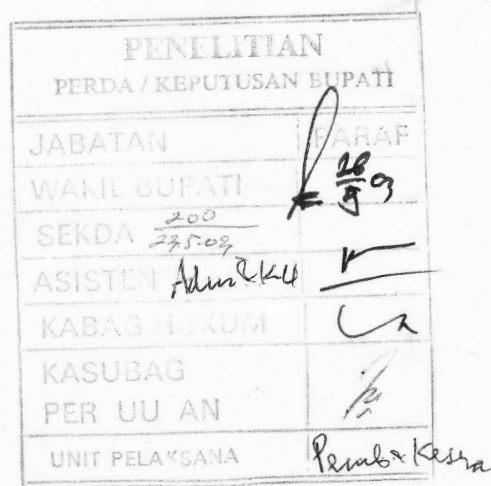 PENELITIAN
PERDA / KEPUTUSAN BUPATI
JABATAN PARAF
WAKIL BUPATI
SEKDA 200
ASISTEN
KABAG HUKUM
KASUBAG
PER UU AN
UNIT PELAKSANA